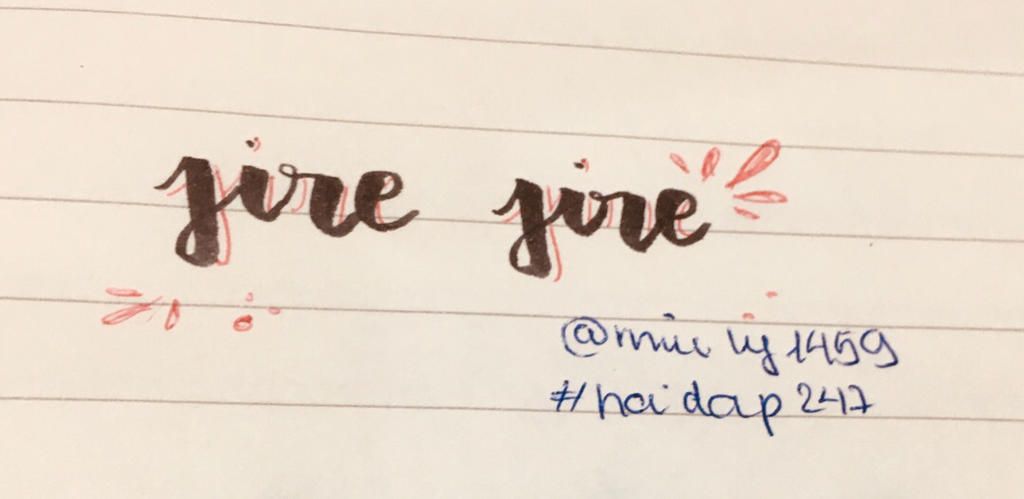 jire jire
1459
#hoidap247